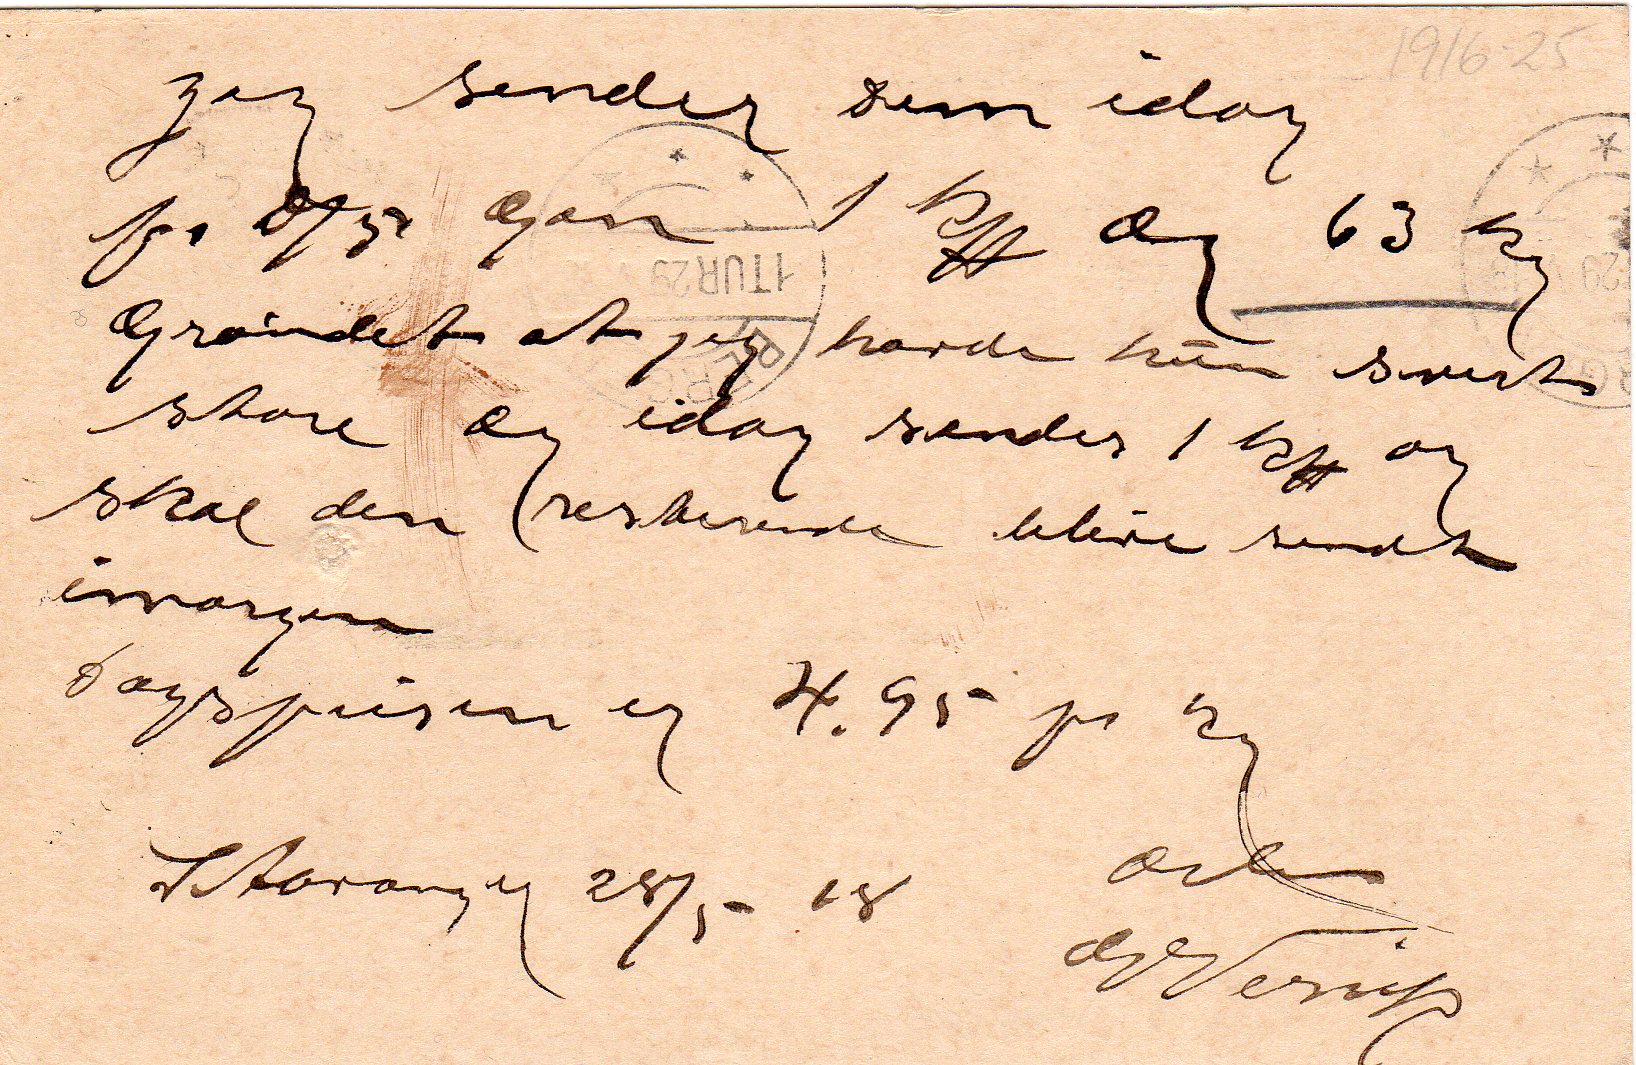 1916-25
Jeg sender Dem idag
pr D/S 1 kss Æg 63 kg
Grundet at jeg havde kun svært
store Æg idag sender 1 kss og
skal den resterende blive sendt
imorgen
Dagsprisen er 4.95 pr kg
Stavanger 28/5-18
1 TUR 29